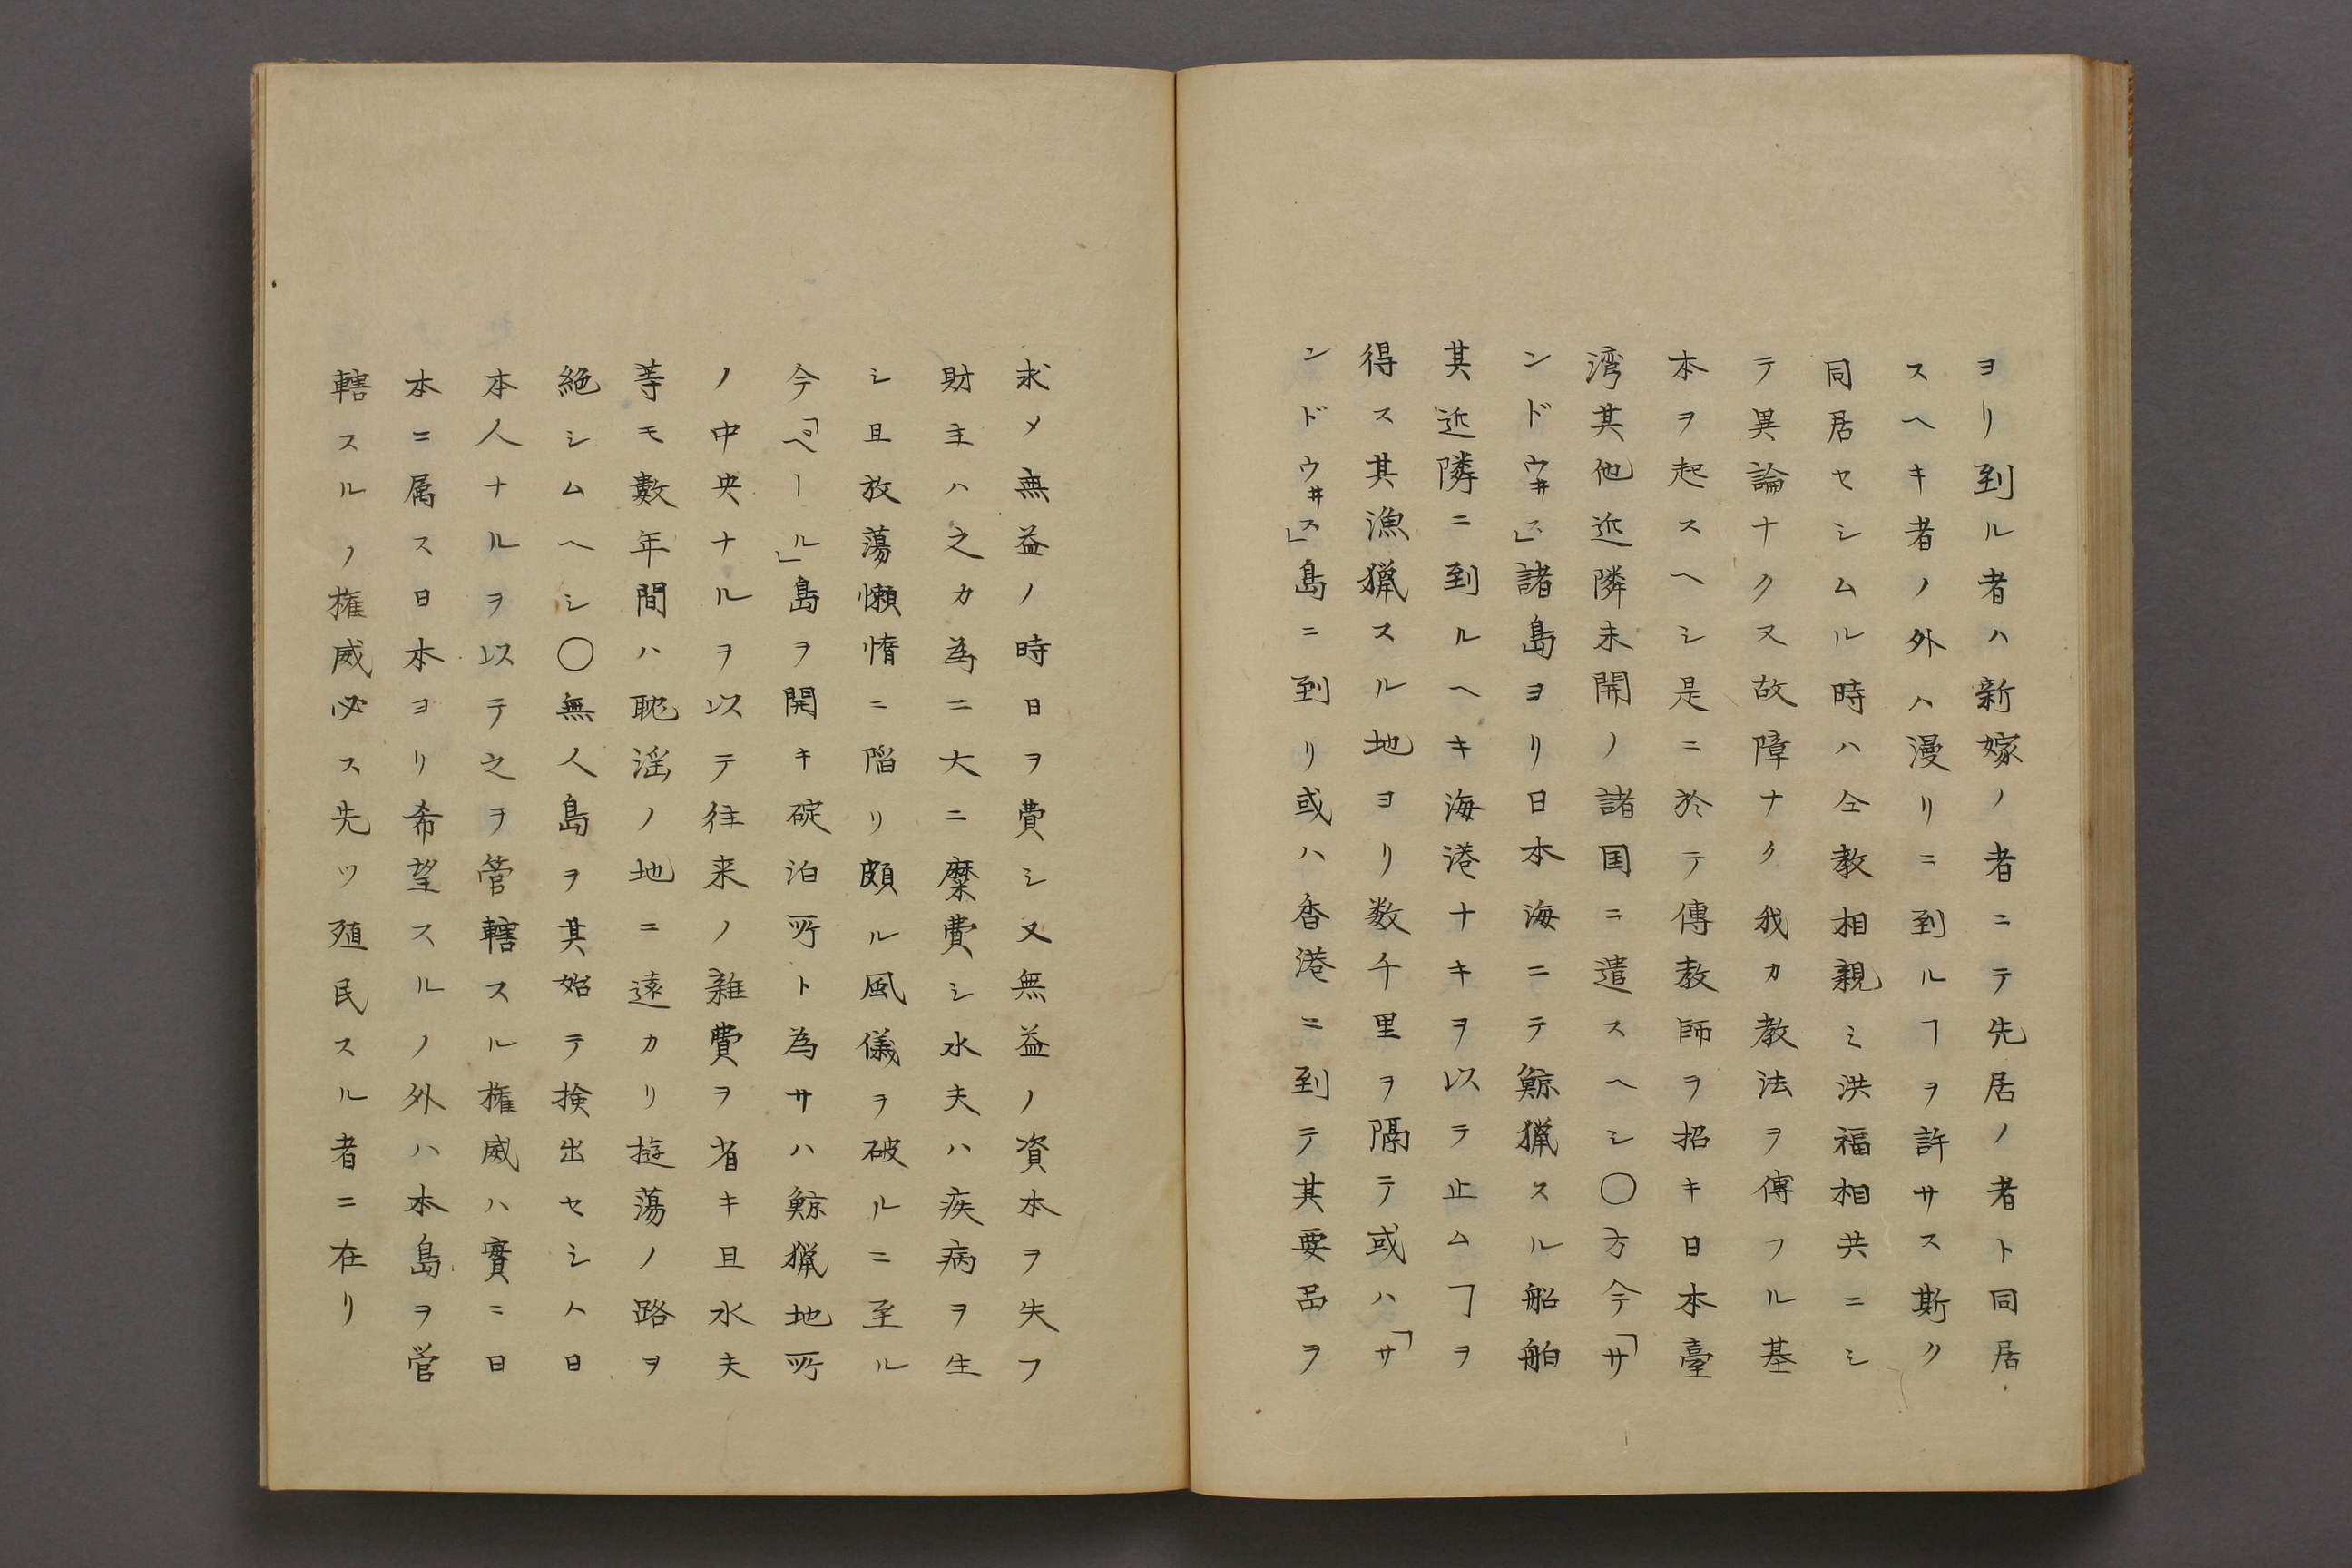 ヨリ到ル者ハ新嫁ノ者ニテ先居ノ者ト同居
スヘキ者ノ外ハ漫リニ到ルヿヲ許サス斯ク
同居セシムル時ハ仝教相親ミ洪福相共ニシ
テ異論ナク又故障ナク我カ教法ヲ傳フル基
本ヲ起スヘシ是ニ於テ傳教師ヲ招キ日本臺
湾其他近隣未開ノ諸国ニ遣スヘシ〇方今「サ
ンドウ井ス」諸島ヨリ日本海ニテ鯨猟スル船舶
其近隣ニ到ルヘキ海港ナキヲ以テ止ムヿヲ
得ス其漁猟スル地ヨリ数千里ヲ隔テ或ハ「サ
ンドウ井ス」島ニ到リ或ハ香港ニ到テ其要品ヲ
求メ無益ノ時日ヲ費シ又無益ノ資本ヲ失フ
財主ハ之カ為ニ大ニ糜費シ水夫ハ疾病ヲ生
シ且放蕩懶惰ニ陥リ頗ル風儀ヲ破ルニ至ル
今「ペール」島ヲ開キ碇泊所ト為サハ鯨猟地所
ノ中央ナルヲ以テ往来ノ雑費ヲ省キ且水夫
等モ數年間ハ耽淫ノ地ニ遠カリ遊蕩ノ路ヲ
絶シムヘシ〇無人島ヲ其始テ検出セシハ日
本人ナルヲ以テ之ヲ管轄スル権威ハ實ニ日
本ニ属ス日本ヨリ希望スルノ外ハ本島ヲ管
轄スルノ権威必ス先ツ殖民スル者ニ在リ